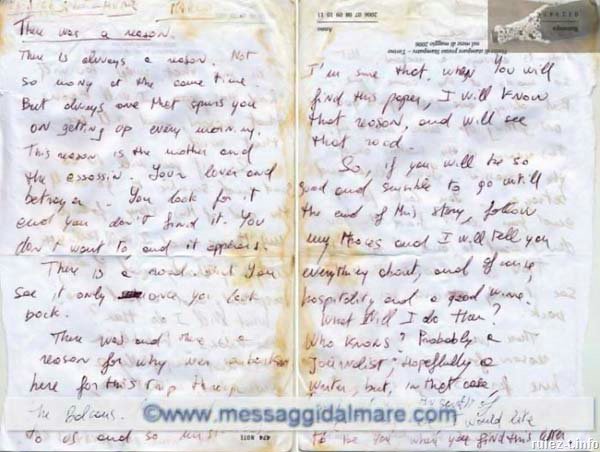 There was a reason.
There is always a reason. Not
so many at the same time.
But always one that spurs you
on getting up every morning.
This reason is the mother and
the assassin. Your lover and
betrayer. You look for it
and you don't find it. You
don't want to and it appears.
There is a road. But you
see it only once you look
back.
There was and there is a
reason for why
here for this trip through
the Balcans.
to us and so
474 NOTE
2006 07 08 09 10 11
Anno
Finito di stampare presso Stampatre - Torino
nel mese di maggio 2006
I'm sure that, when you will
find this paper, I will know
that reason, and will see
that road.
So, if you will be so
good and sensible to go untill
the end of this story, follow
my traces and I will tell you
everything about, and of course,
hospitality and a good wine.
What will I do then?
Who knows? Probably a
Journalist; Hopefully a
writer, but, in that case
I would like
to be you when you find this letter.
©www.messaggidalmare.com
rulez-t.info